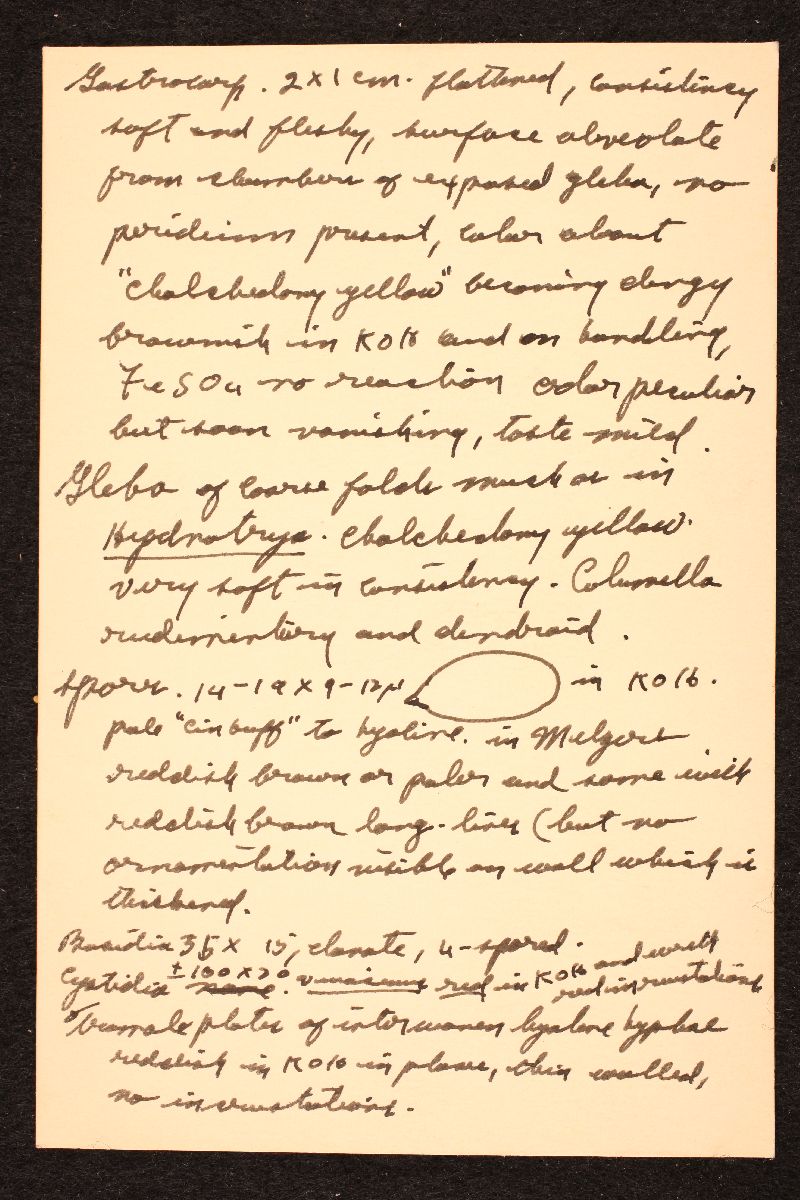 Gastrocarp. 2 x 1 cm. flattened, consistency
soft and fleshy, surface alveolate
from chambers of exposed gleba, no
peridium present, color about
"chalchedony yellow" becoming dingy
brownish in KOH and on handling,
FeSO4 no reaction odor peculiar
but soon vanishing, taste mild.
Gleba of coarse folds much as in
Hydnotrya. Chalchedony yellow.
very soft in consistency. Columella
rudimentary and dendroid.
Spores. 14-19 x 9-12μ in KOH.
pale "cin buff" to hyaline. in Melzers
reddish brown or paler and some with
reddish brown long. lines (but no
ornamentation visible on wall which is
thickened.
Basidia 35 x 15, clavate, 4-spored.
Cystidia ± 100 x 20 none. red in KOH and with red incrustations
Tramal plates of interwoven hyaline hyphae
reddish in KOH in places, thin walled,
no incrustations.